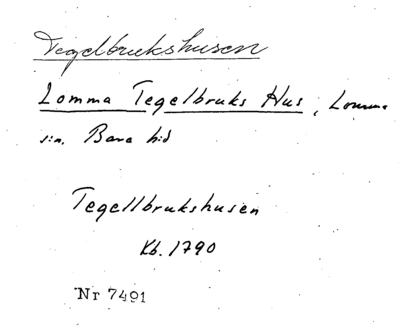 Tegelbrukshusen
Lomma Tegelbruks Hus, Lomma
sn. Bara hd
Tegellbrukshusen
Kb. 1790
Nr 7491